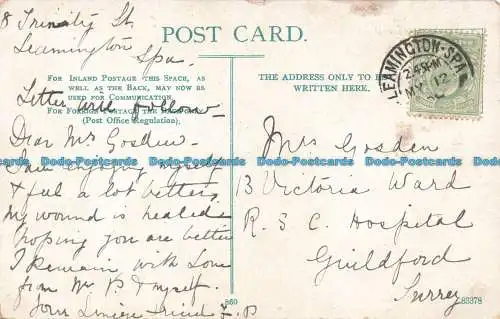 8 Trinity St
Leamington
Spa
POST CARD.
FOR INLAND POSTAGE THIS SPACE, AS
WELL AS THE BACK, MAY NOW BE
USED FOR COMMUNICATION.
FOR FOREIGN POSTAGE THE BACK ONLY
(Post Office Regulation),
THE ADDRESS ONLY TO BE
WRITTEN HERE.
LEAMINGTON-SPA
MY 12
Letter will follow
Dear Mr Gosden
I am enjoying myself
& feel a lot better
my wound is healed
hoping you are better
I remain with Love
from Mr P & myself.
your friend
Mrs Gosden
13 Victoria Ward
R S C Hospital
Guildford
Surrey
860
83378
Dodo-Postcards Dodo-Postcards Dodo-Postcards Dodo-Postcards Dodo-Postcards